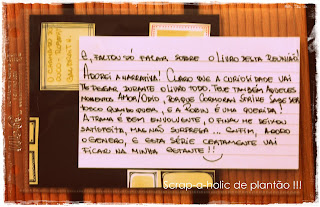 E, FALTOU SÓ FALAR SOBRE O LIVRO DESTA REUNIÃO!
ADOREI A NARRATIVA! CLARO QUE A CURIOSIDADE VAI
TE PEGAR DURANTE O LIVRO TODO. TEVE TAMBÉM AQUELES
MOMENTOS AMOR/ÓDIO, PORQUE CORMORAN STRIKE SABE SER
TOSCO QUANDO QUER, E A ROBIN É UMA QUERIDA!
A TRAMA É BEM ENVOLVENTE, O FINAL ME DEIXOU
SATISFEITA, MAS NÃO SURPRESA... ENFIM, ADORO
O GÊNERO, E ESTA SÉRIE CERTAMENTE VAI
FICAR NA MINHA ESTANTE!!
Scrap-a-holic de plantão !!!